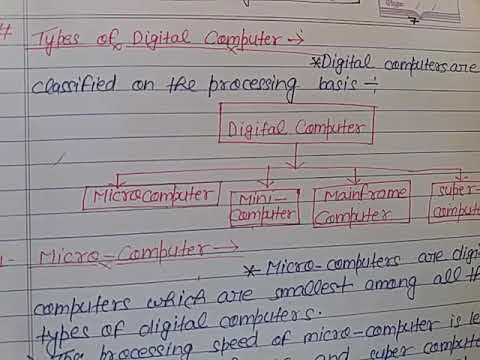 Types of Digital Computer →
* Digital computers are
classified on the processing basis ÷
Digital Computer
Microcomputer
Mini-
Computer
Mainframe
Computer
super-
compute
Micro-Computer →
* Micro-computers are digi
computers which are smallest among all th
types of digital computers.
The processing speed of micro-computer is le
and super compute